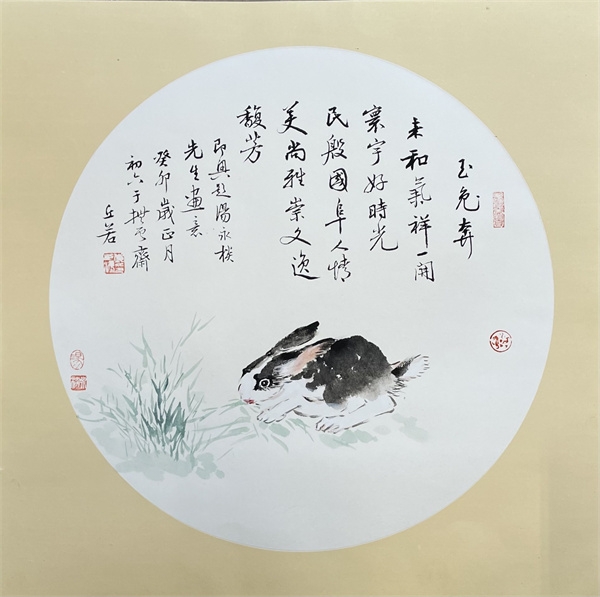 玉兔奔
来和氣祥一開
寰宇好時光
民殷國阜人情
美尚雅崇文逸
馥芳
即興陽永
先生畫意
癸卯歲正月
初六于齋
丘若